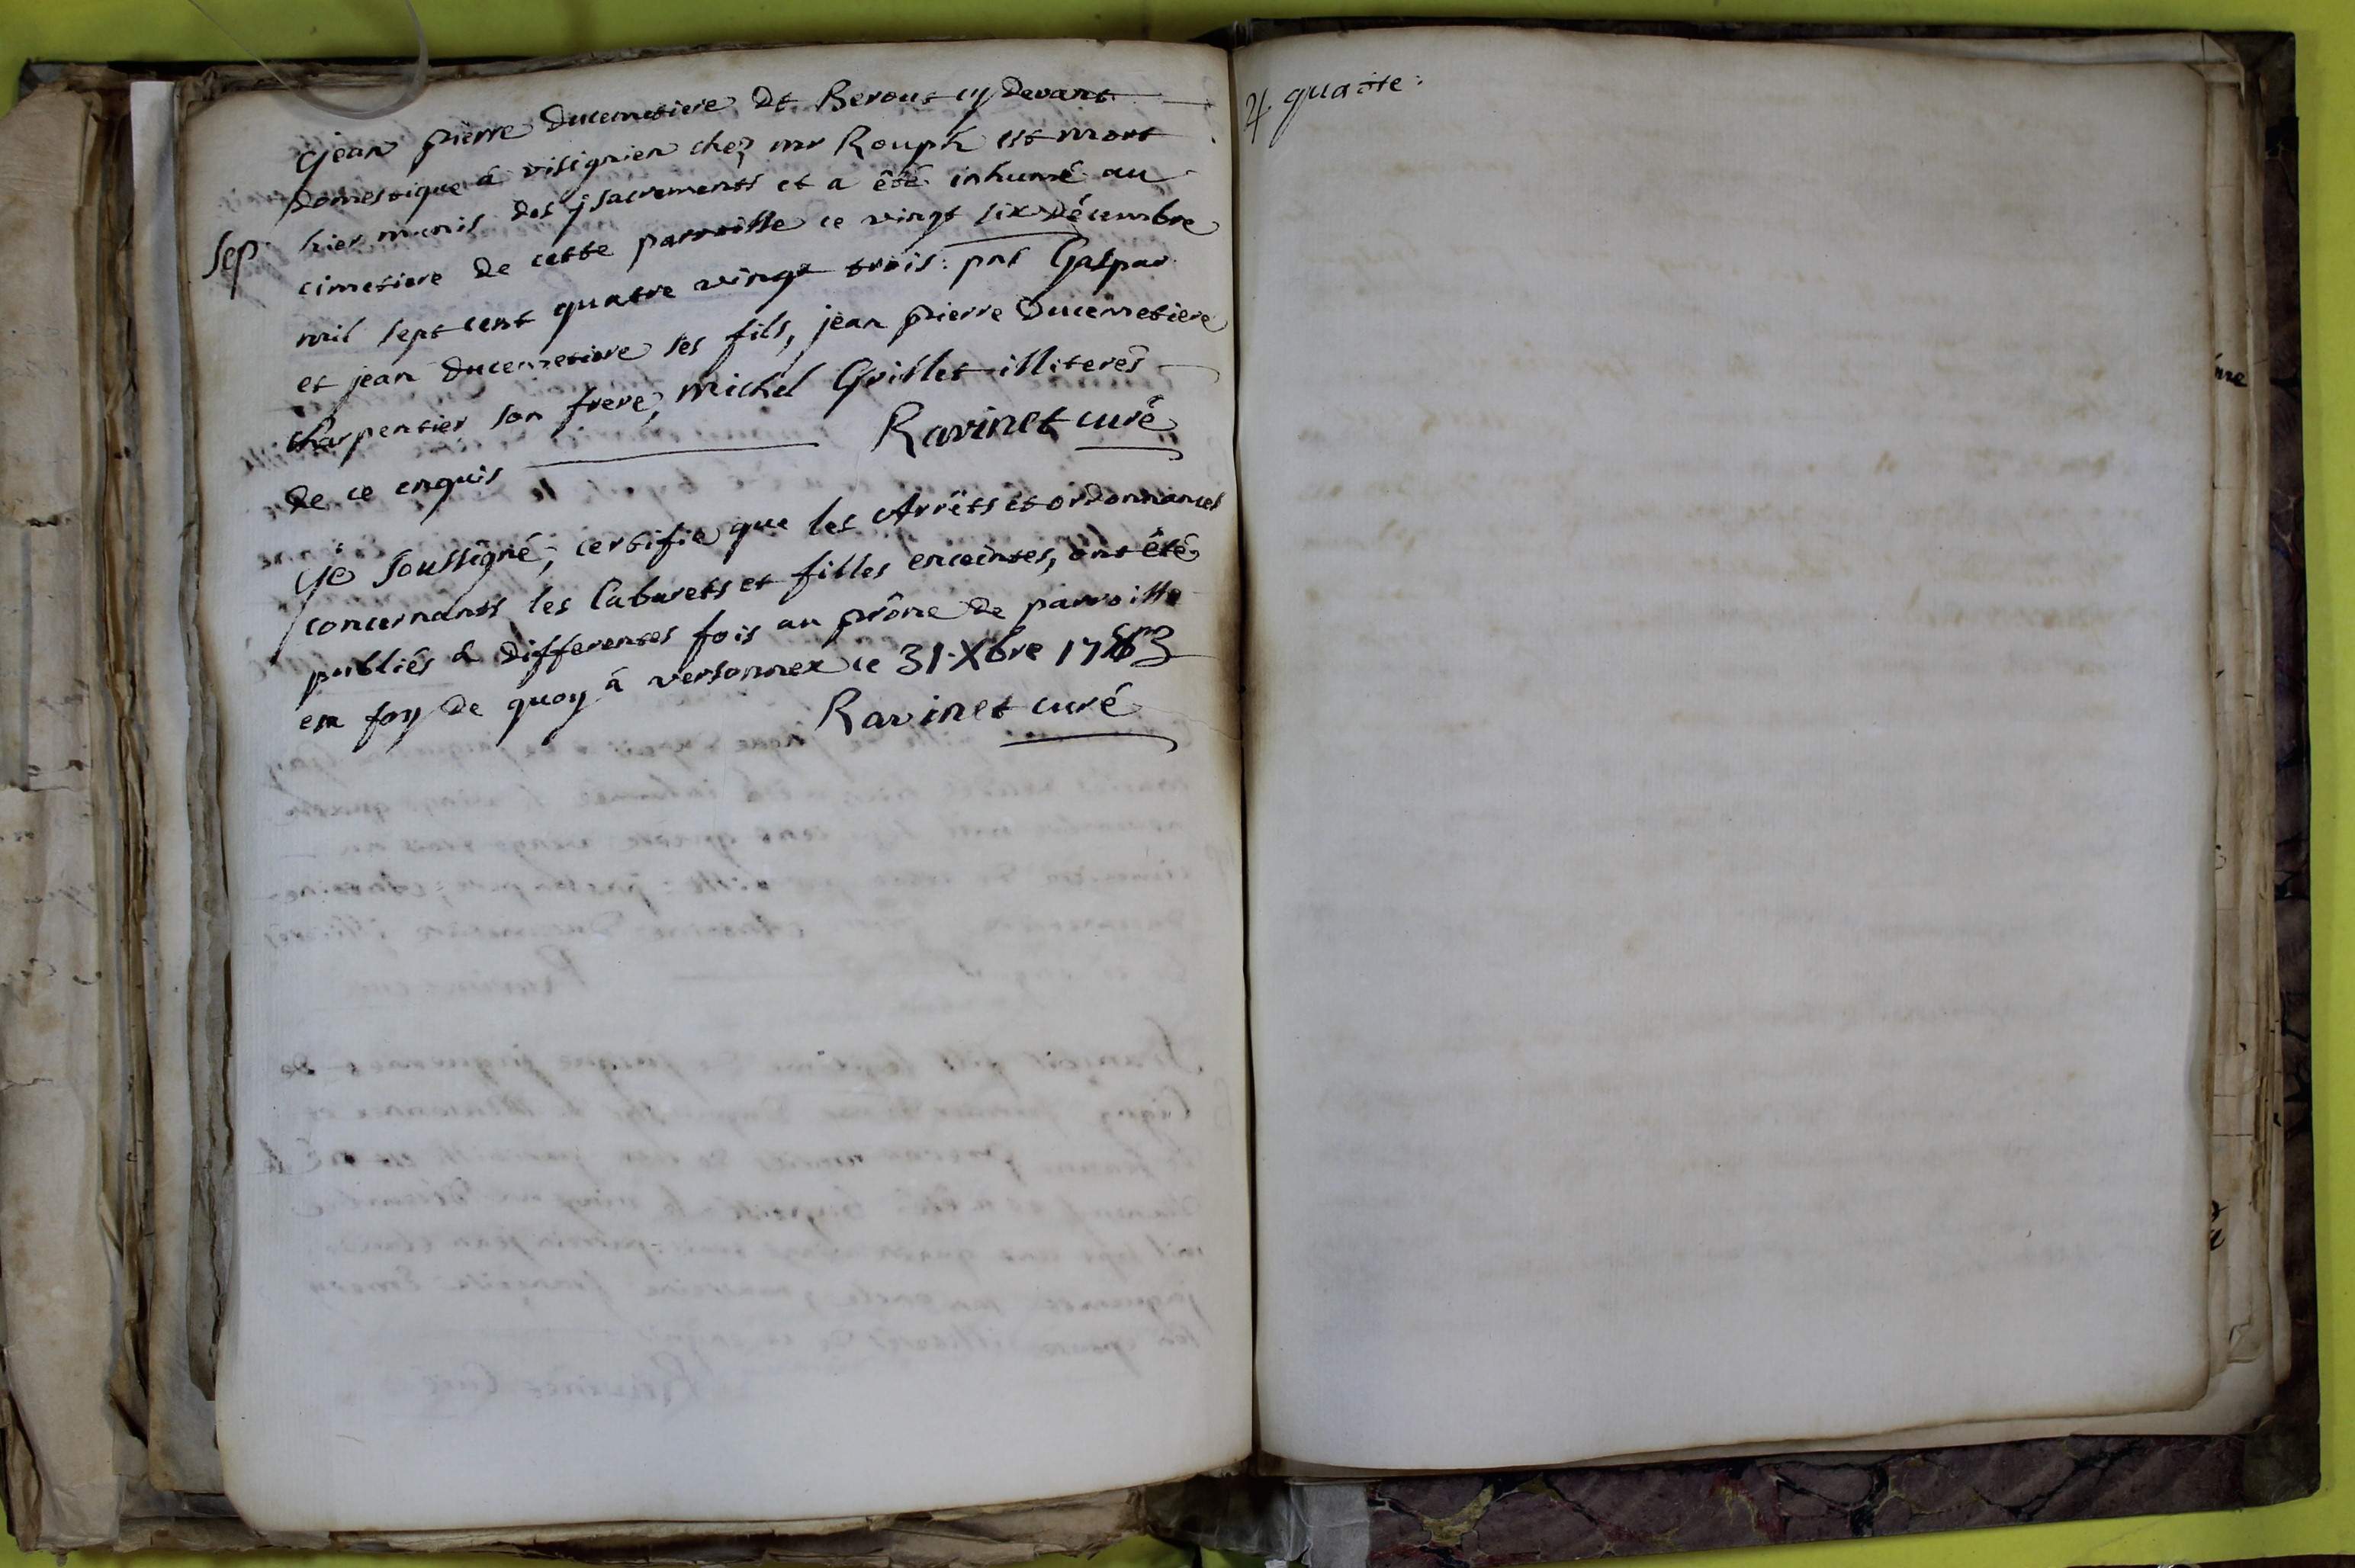 jean pierre Ducemetiere dt Berout cy devant
domestique à visignien chez mr Rouph est mort
Sep
hier munis des ss sacrements et a été inhumé au
cimetiere de cette parroisse ce vingt six décembre
mil sept cent quatre vingt trois: pnt Gaspar
et jean Ducemetiere ses fils, jean pierre Ducemetiere
charpentier son frere, Michel Grillet illiterés
de ce enquis Ravinet curé
je soussigné, certifie que les Arrêts et ordonnances
concernants les Cabarets et filles enceintes, ont été
publiés à differentes fois au prône de parroisse
en foy de quoy à versonnex ce 31 Xbre 1783
Ravinet curé
4 quatre: